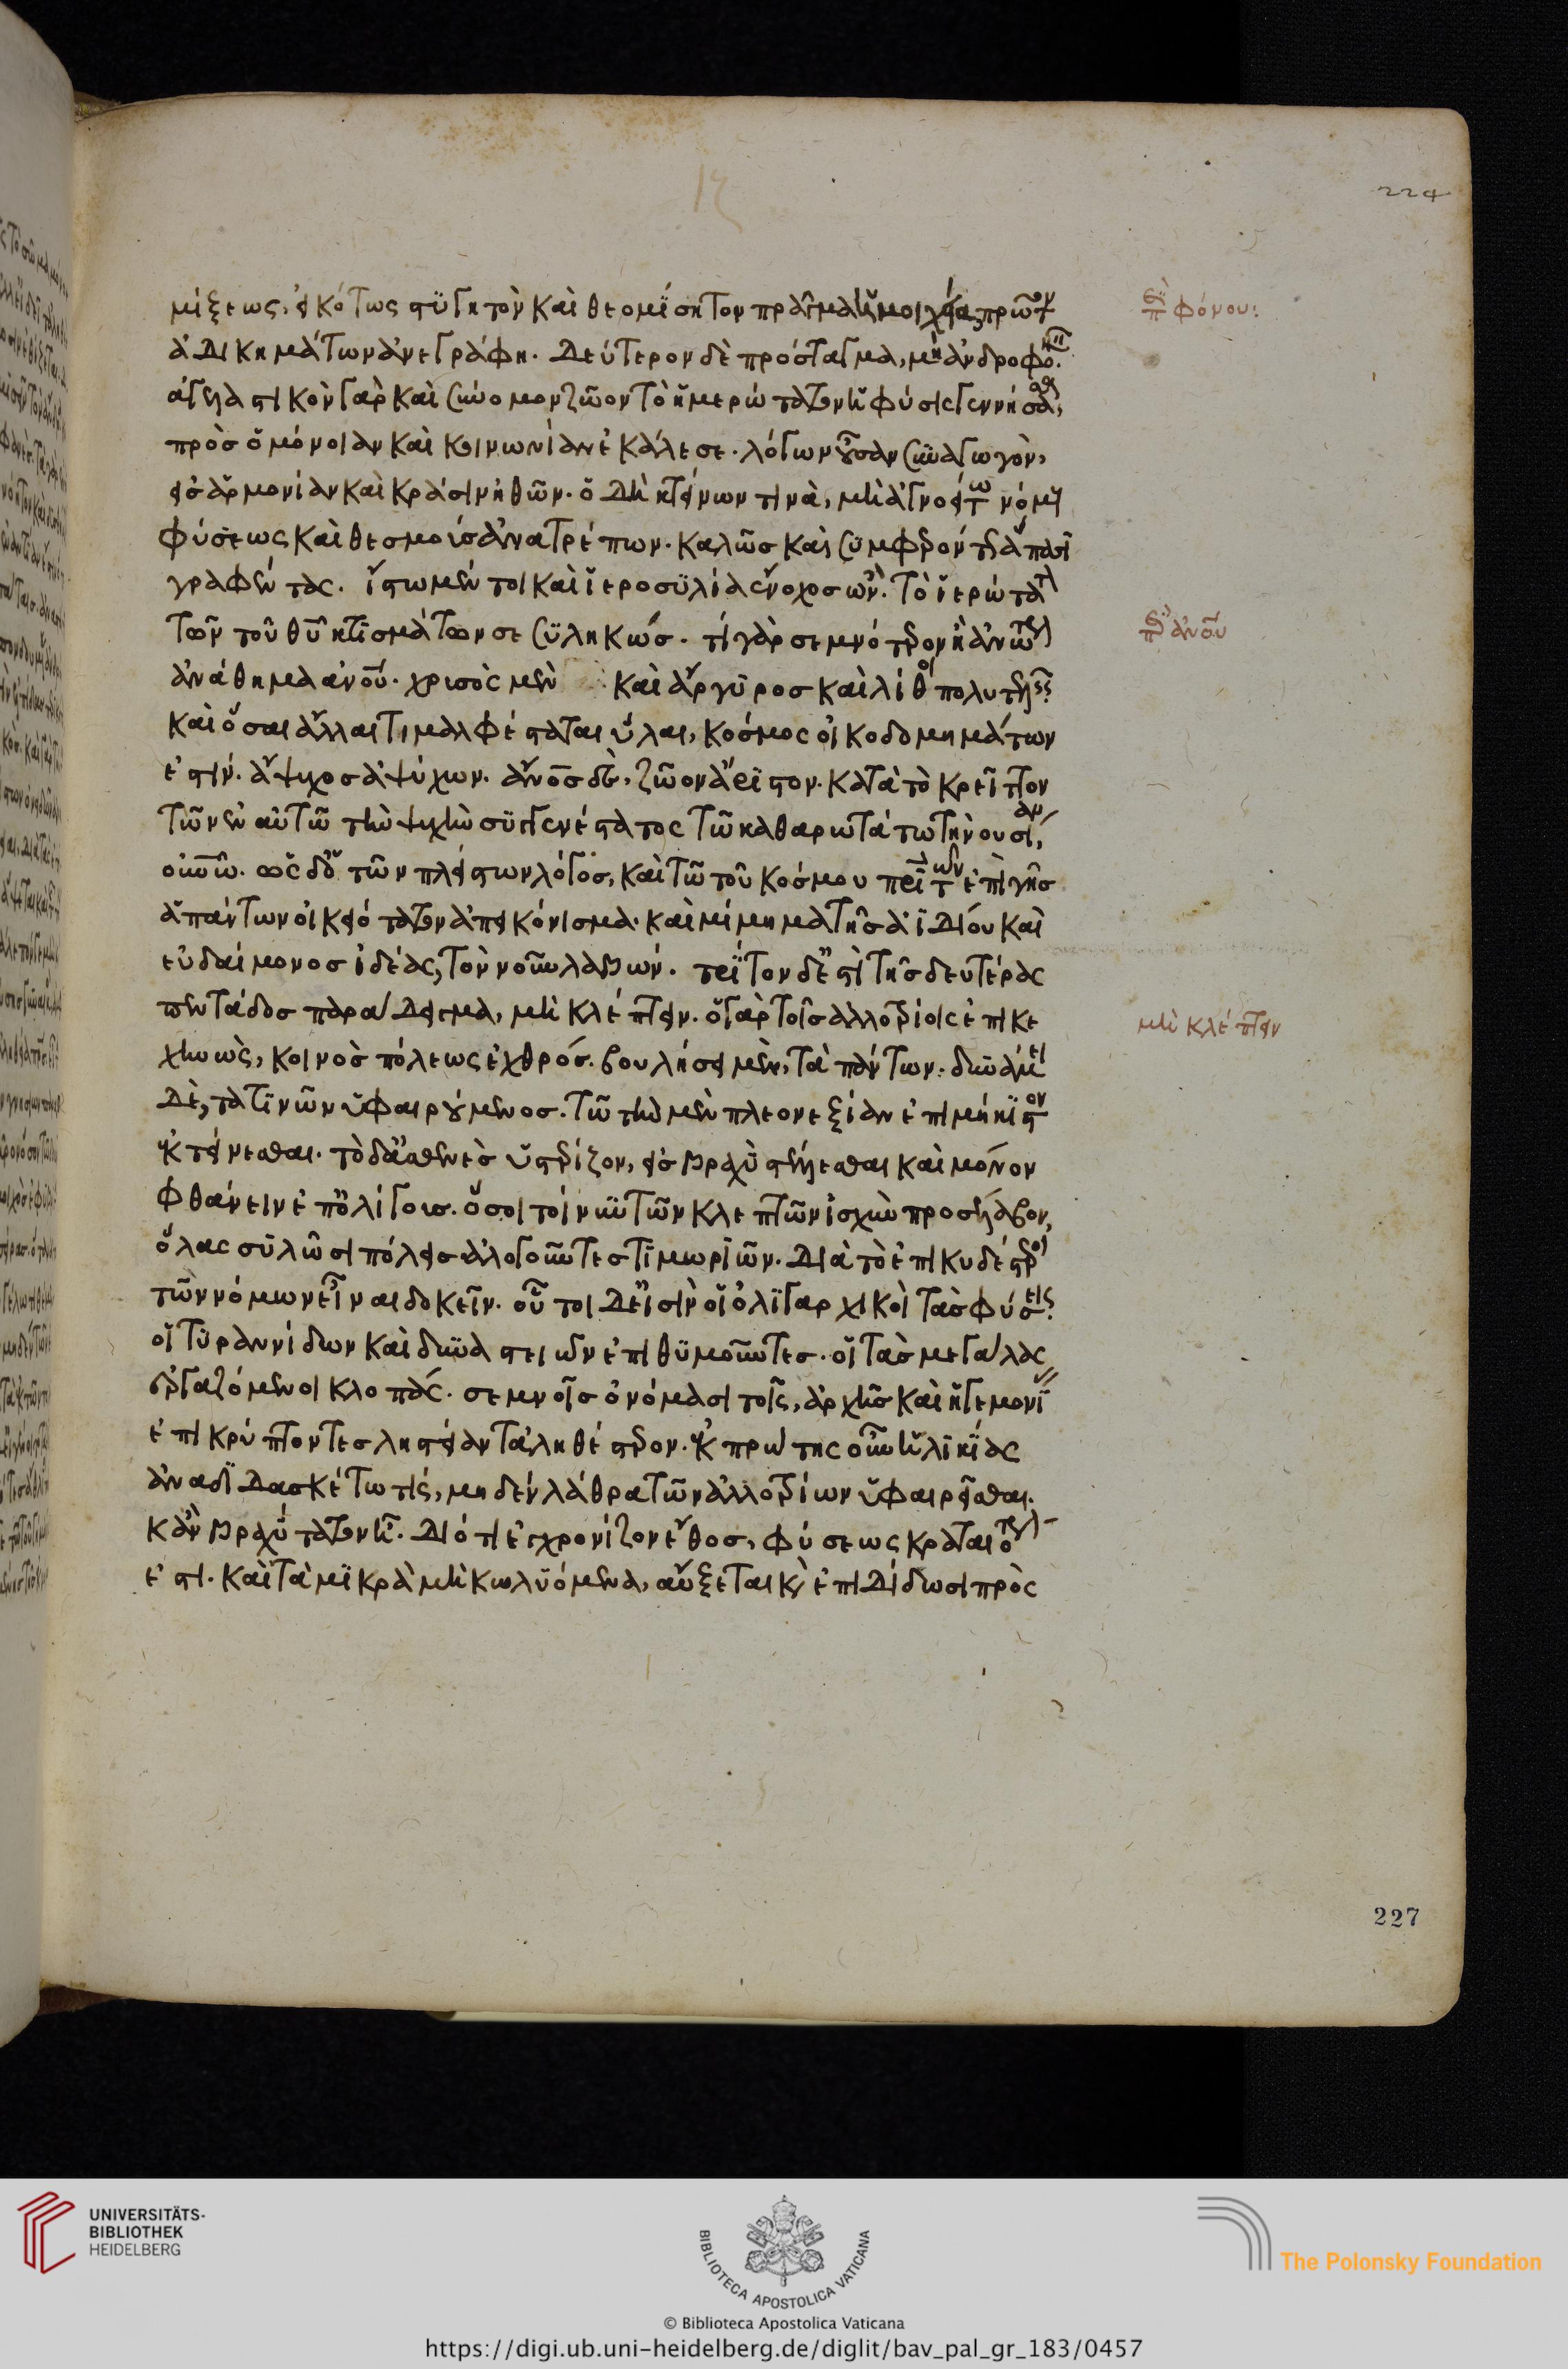 224
μίξεως, εἰκότως στυγητὸν καὶ θεομίσητον πρᾶγμα ἡ μοιχεία, πρῶτον
ἀδικημάτων ἀνεγράφη. δεύτερον δὲ πρόσταγμα, μὴ ἀνδροφο
ἀγελαστικὸν γὰρ καὶ σύννομον ζῶον τὸ ἡμερώτατον ἡ φύσις γεννήσασα,
πρὸς ὁμόνοιαν καὶ κοινωνίαν ἐκάλεσε. λόγων οὖσαν συναγωγὸν,
εἰς ἁρμονίαν καὶ κρᾶσιν ἠθῶν. ὁ δὴ κτείνων τινὰ, μὴ ἀγνοείτω νόμους
φύσεως καὶ θεσμοὺς ἀνατρέπων. καλῶς καὶ συμφερόντως ἅπασι
γραφέντας. ἴστω μέντοι καὶ ἱεροσυλίας ἔνοχος ὤν. τὸ ἱερώτατον
τῶν τοῦ θυ κτισμάτων σεσυληκώς. τί γὰρ σεμνότερον ἢ ἁγιώτερον
ἀνάθημα ἀνου. χρυσὸς μὲν καὶ ἄργυρος καὶ λίθοι πολυτελεῖς
καὶ ὅσαι ἄλλαι τιμαλφέσταται ὗλαι, κόσμος οἰκοδομημάτων
ἐστὶν. ἄψυχος ἀψύχων. ἄνος δὲ, ζῶον ἄριστον. κατὰ τὸ κρεῖττον
τῶν ἐν αὐτῶ τὴν ψυχὴν συγγενέστατος τῶ καθαρωτάτω τὴν οὐσίαν,
οὐνῶ. ὡς δ' ὁ τῶν πλείστων λόγος, καὶ τῶ τοῦ κόσμου πρὶ τῶν ἐπὶ γῆς
ἁπάντων οἰκειότατον ἀπεικόνισμα. καὶ μίμημα τῆς ἀϊδίου καὶ
εὐδαίμονος ἰδέας, τὸν νοῦν λαβών. τρίτον δ' ἐστὶ τῆς δευτέρας
πεντάδος παράδειγμα, μὴ κλέπτειν. ὁ γὰρ τοῖς ἀλλοτρίοις ἐπικε
χηνὼς, κοινὸς πόλεως ἐχθρός. βουλήσει μὲν, τὰ πάντων. δυνάμει
δὲ, τὰ τινῶν ὑφαιρούμενος. τῶ τὴν μὲν πλεονεξίαν ἐπιμήκιστον
ἐκτείνεσθαι. τὸ δ' ἀσθενὲς ὑστερίζον, εἰς βραχὺ στέλλεσθαι καὶ μόνον
φθάνειν ἐπ' ὀλίγοις. ὅσοι τοίνυν τῶν κλεπτῶν ἰσχὺν προσέλαβον,
ὅλας συλῶσι πόλεις ἀλογοῦντες τιμωριῶν. διὰ τὸ ἐπικυδέστεροι
τῶν νόμων εἶναι δοκεῖν. οὗτοι δ' εἰσὶν οἱ ὀλιγαρχικοὶ τὰς φύσεις
οἱ τυραννίδων καὶ δυναστειῶν ἐπιθυμοῦντες. οἱ τὰς μεγάλας
ἐργαζόμενοι κλοπάς. σεμνοῖς ὀνόμασι τοῖς, ἀρχῆς καὶ ἡγεμονί
ἐπικρύπτοντες ληστείαν τἀληθέστερον. ἐκ πρώτης οὖν ἡλικίας
ἀναδιδασκέτω τίς, μηδὲν λάθρα τῶν ἀλλοτρίων ὑφαιρεῖσθαι.
κἂν βραχύτατον ἦ. διότι ἐγχρονίζον ἔθος, φύσεως κραταιότερον
ἐστι. καὶ τὰ μικρὰ μὴ κωλυόμενα, αὔξεται καὶ ἐπιδίδωσι πρὸς
περὶ φόνου:
περὶ ἀνου
μὴ κλέπτειν
227
UNIVERSITÄTS-
BIBLIOTHEK
HEIDELBERG
BIBLIOTECA APOSTOLICA VATICANA
The Polonsky Foundation
© Biblioteca Apostolica Vaticana
https://digi.ub.uni-heidelberg.de/diglit/bav_pal_gr_183/0457